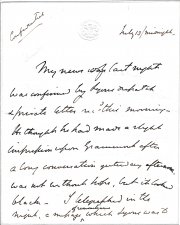 Confidential
July 13/ midnight.
My news of last night
was confirmed by Lyons
private letter this morning.
He thought he had made a slight
impression upon Gramont after
a long conversation yesterday afternoon
was not without hope, but it looked
black. I telegraphed in the
night, a message, which Lyons